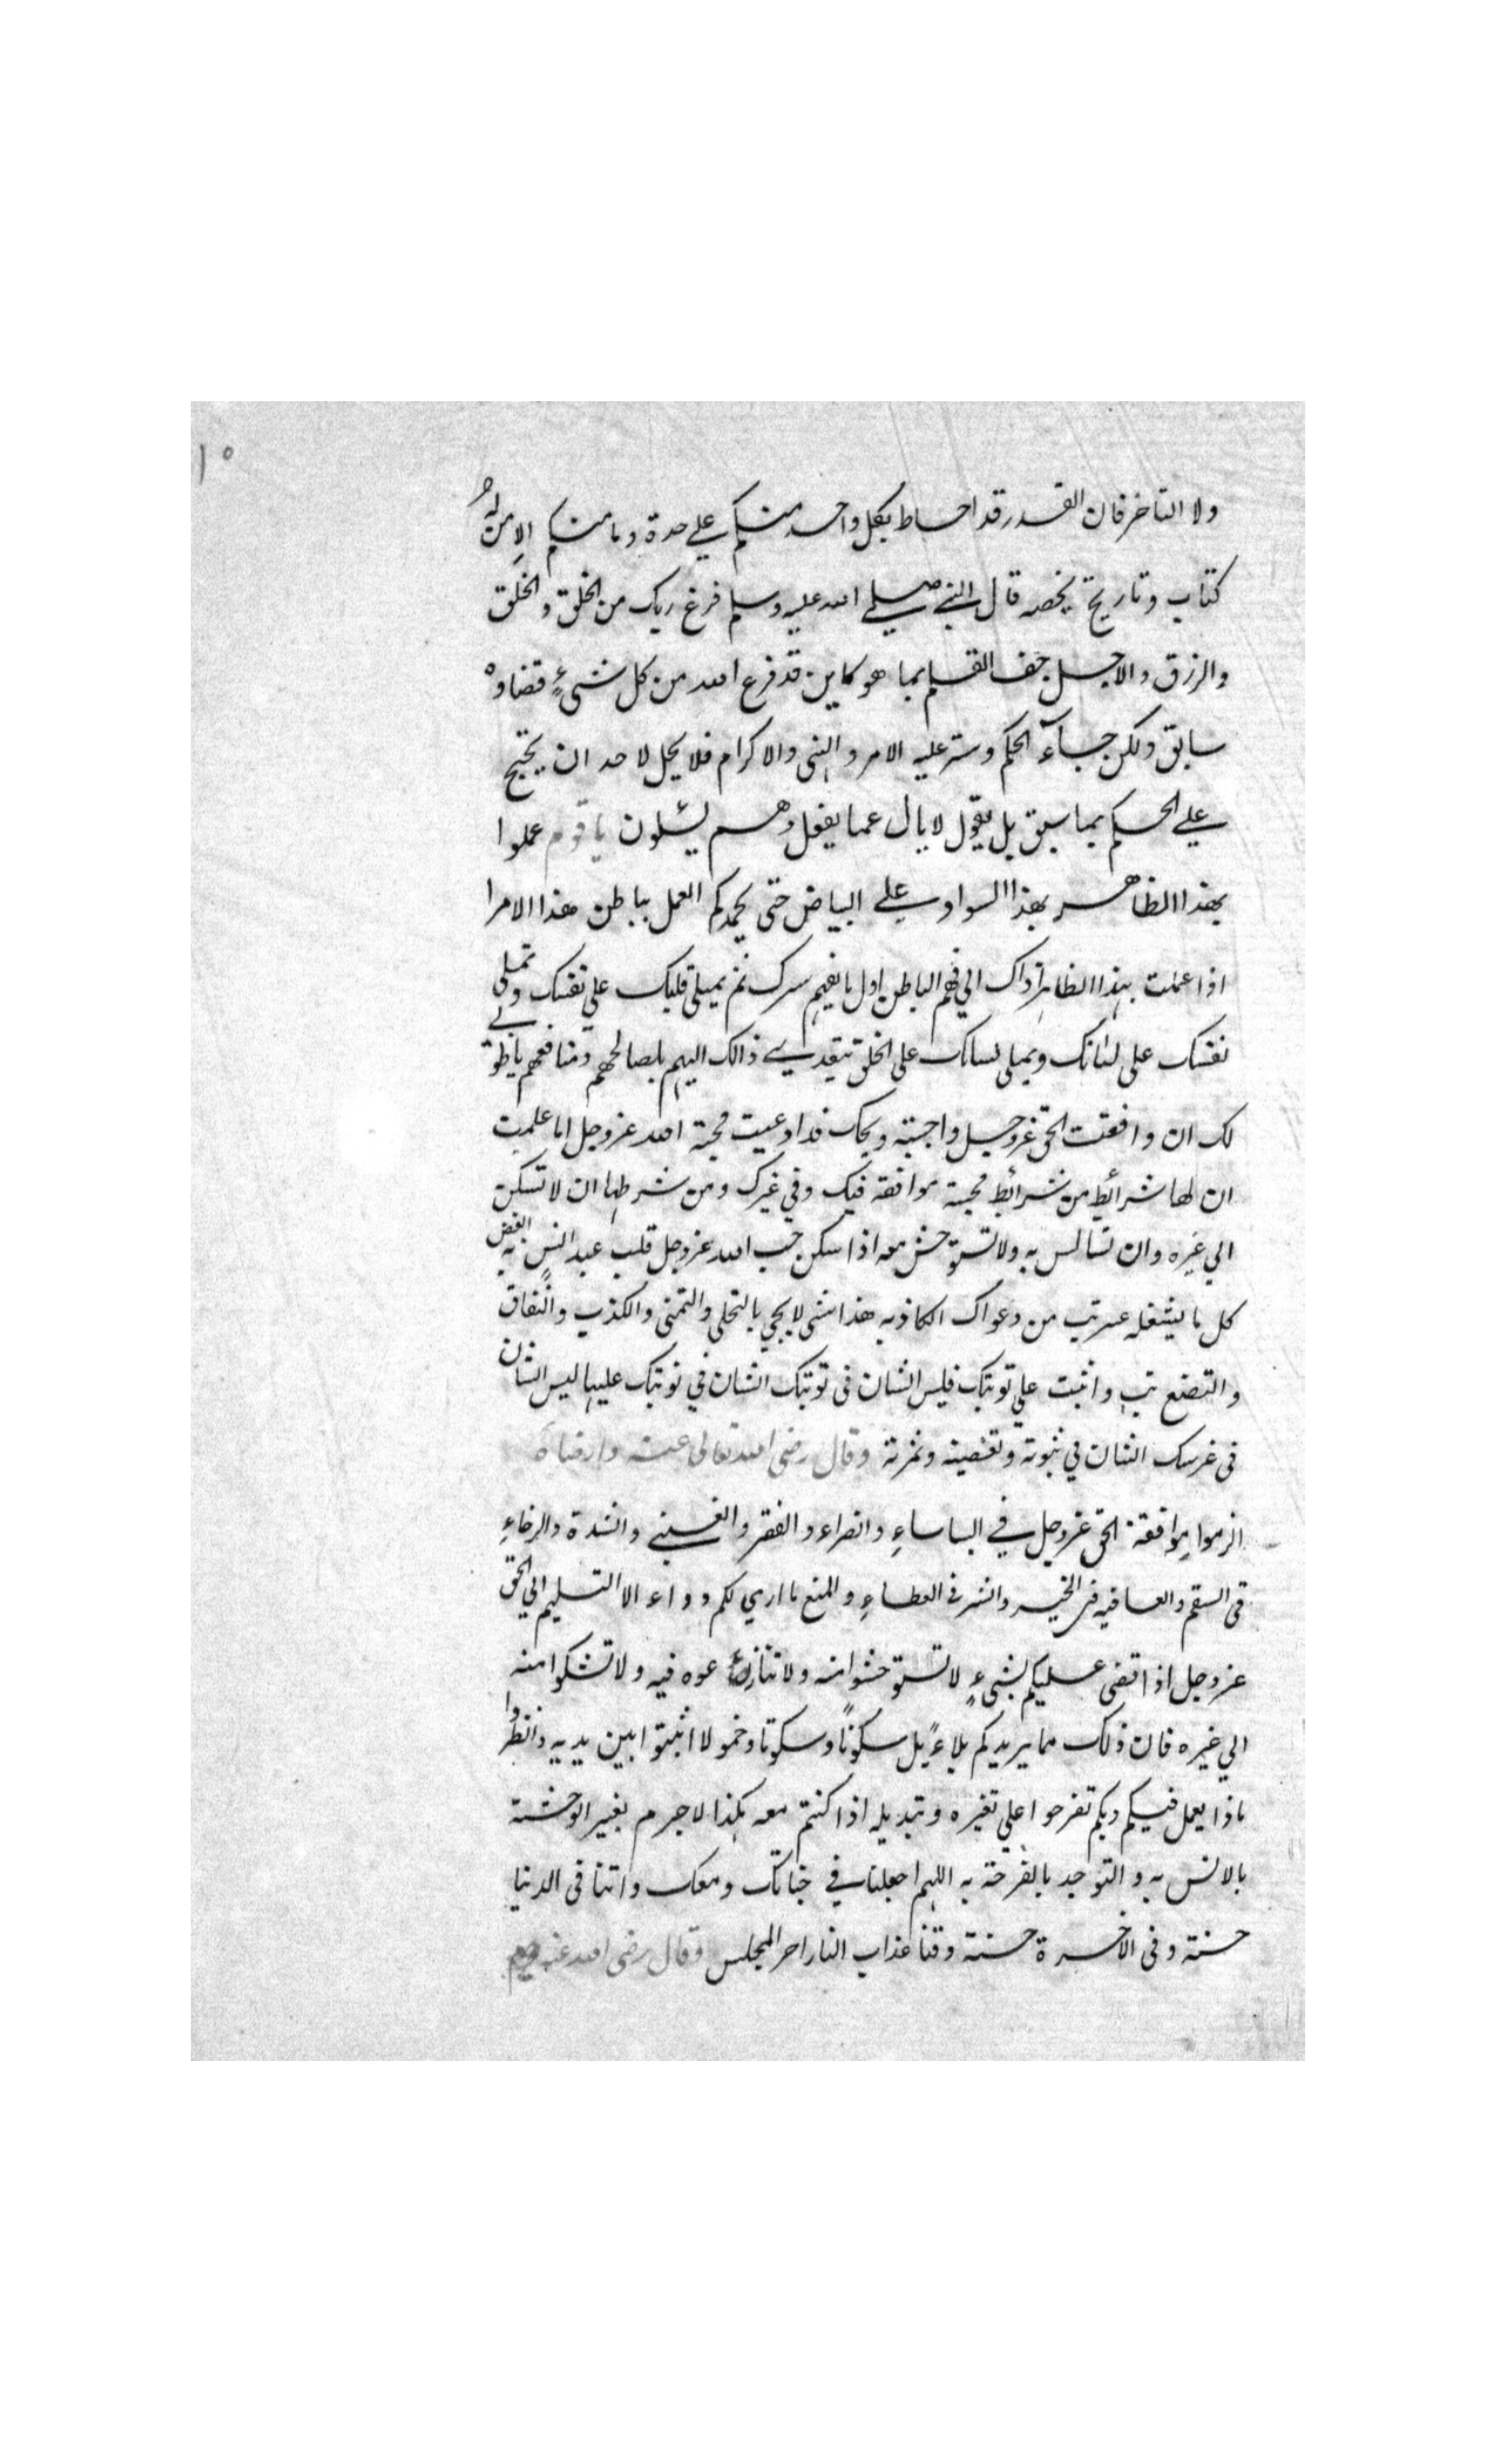 ١٥
ولا التاخر فان القدر قد احاط بكل واحد منكم علي حدة وما منكم الا من له
كتاب وتاريخ يخصه قال النبي صلي الله عليه وسلم فرغ ربك من الخلق والخلق
والرزق والاجل جف القلم بما هو كاين قد فرغ الله من كل شيء قضاوه
سابق ولكن جآء الحكم وستر عليه الامر والنهي والاكرام فلا يحل لاحد ان يحتج
علي الحكم بما سبق بل يقول لا يال عما يفعل وهم يسئلون يا قوم عملوا
بهذا الظاهر بهذا السواد علي البياض حتى يحمدكم العمل بباطن هذا الامرا
اذا عملت بهذا الظاهر اداك الي فهم الباطن اول ما يفهم سرك ثم يملي قلبك علي نفسك وتملي
نفسك على لسانك ويملى لسانك على الخلق يتعدي ذالك اليهم بلصالحهم ومنافعهم يا طوبي
لك ان وافقت الحق عزوجل واحببته ويحك قد ادعيت محبة الله عزوجل اما علمت
ان لها شرائط من شرائط محبة موافقه فيك وفي غيرك ومن شرطها ان لا تسكن
الي غيره وان تسالس به ولا تستوحش معه اذا سكن حب الله عزوجل قلب عبد انس به ابغض
كل ما يشغله عنه تب من دعواك الكاذبه هذا شى لا يجي بالتحلي والتمنى والكذب والنفاق
والتصنع تب واثبت علي توبتك فليس الشان فى توبتك الشان في ثوبتك عليها ليس الشان
فى غرسك الشان في ثبوته وتغصينه وثمرته وقال رضى الله تعالى عنه وارضاه
الزموا موافقة الحق عزوجل في الباساء والضراء والفقر والغني والشدة والرخاء
فى السقم والعافيه فى الخير والشر فى العطاء والمنع ما اري لكم دواء الا التسليم الي الحق
عزوجل اذا قضى عليكم بشيء لا تستوحشوا منه ولا تنازعوه فيه ولا تشكوا منه
الي غيره فان ذلك مما يريدكم بلاءً بل سكونًا وسكوتا وخمولا اثبتوا بين يديه وانظروا
ماذا يعمل فيكم وبكم تفرحوا علي تغيره وتبديله اذا كنتم معه هكذا لا جرم يغير الوحشة
بالانس به والتوحد بالفرحة به اللهم اجعلنا في جنابك ومعك واتنا فى الدنيا
حسنة وفى الاخرة حسنة وقنا عذاب النار اخر المجلس وقال رضى الله عنه